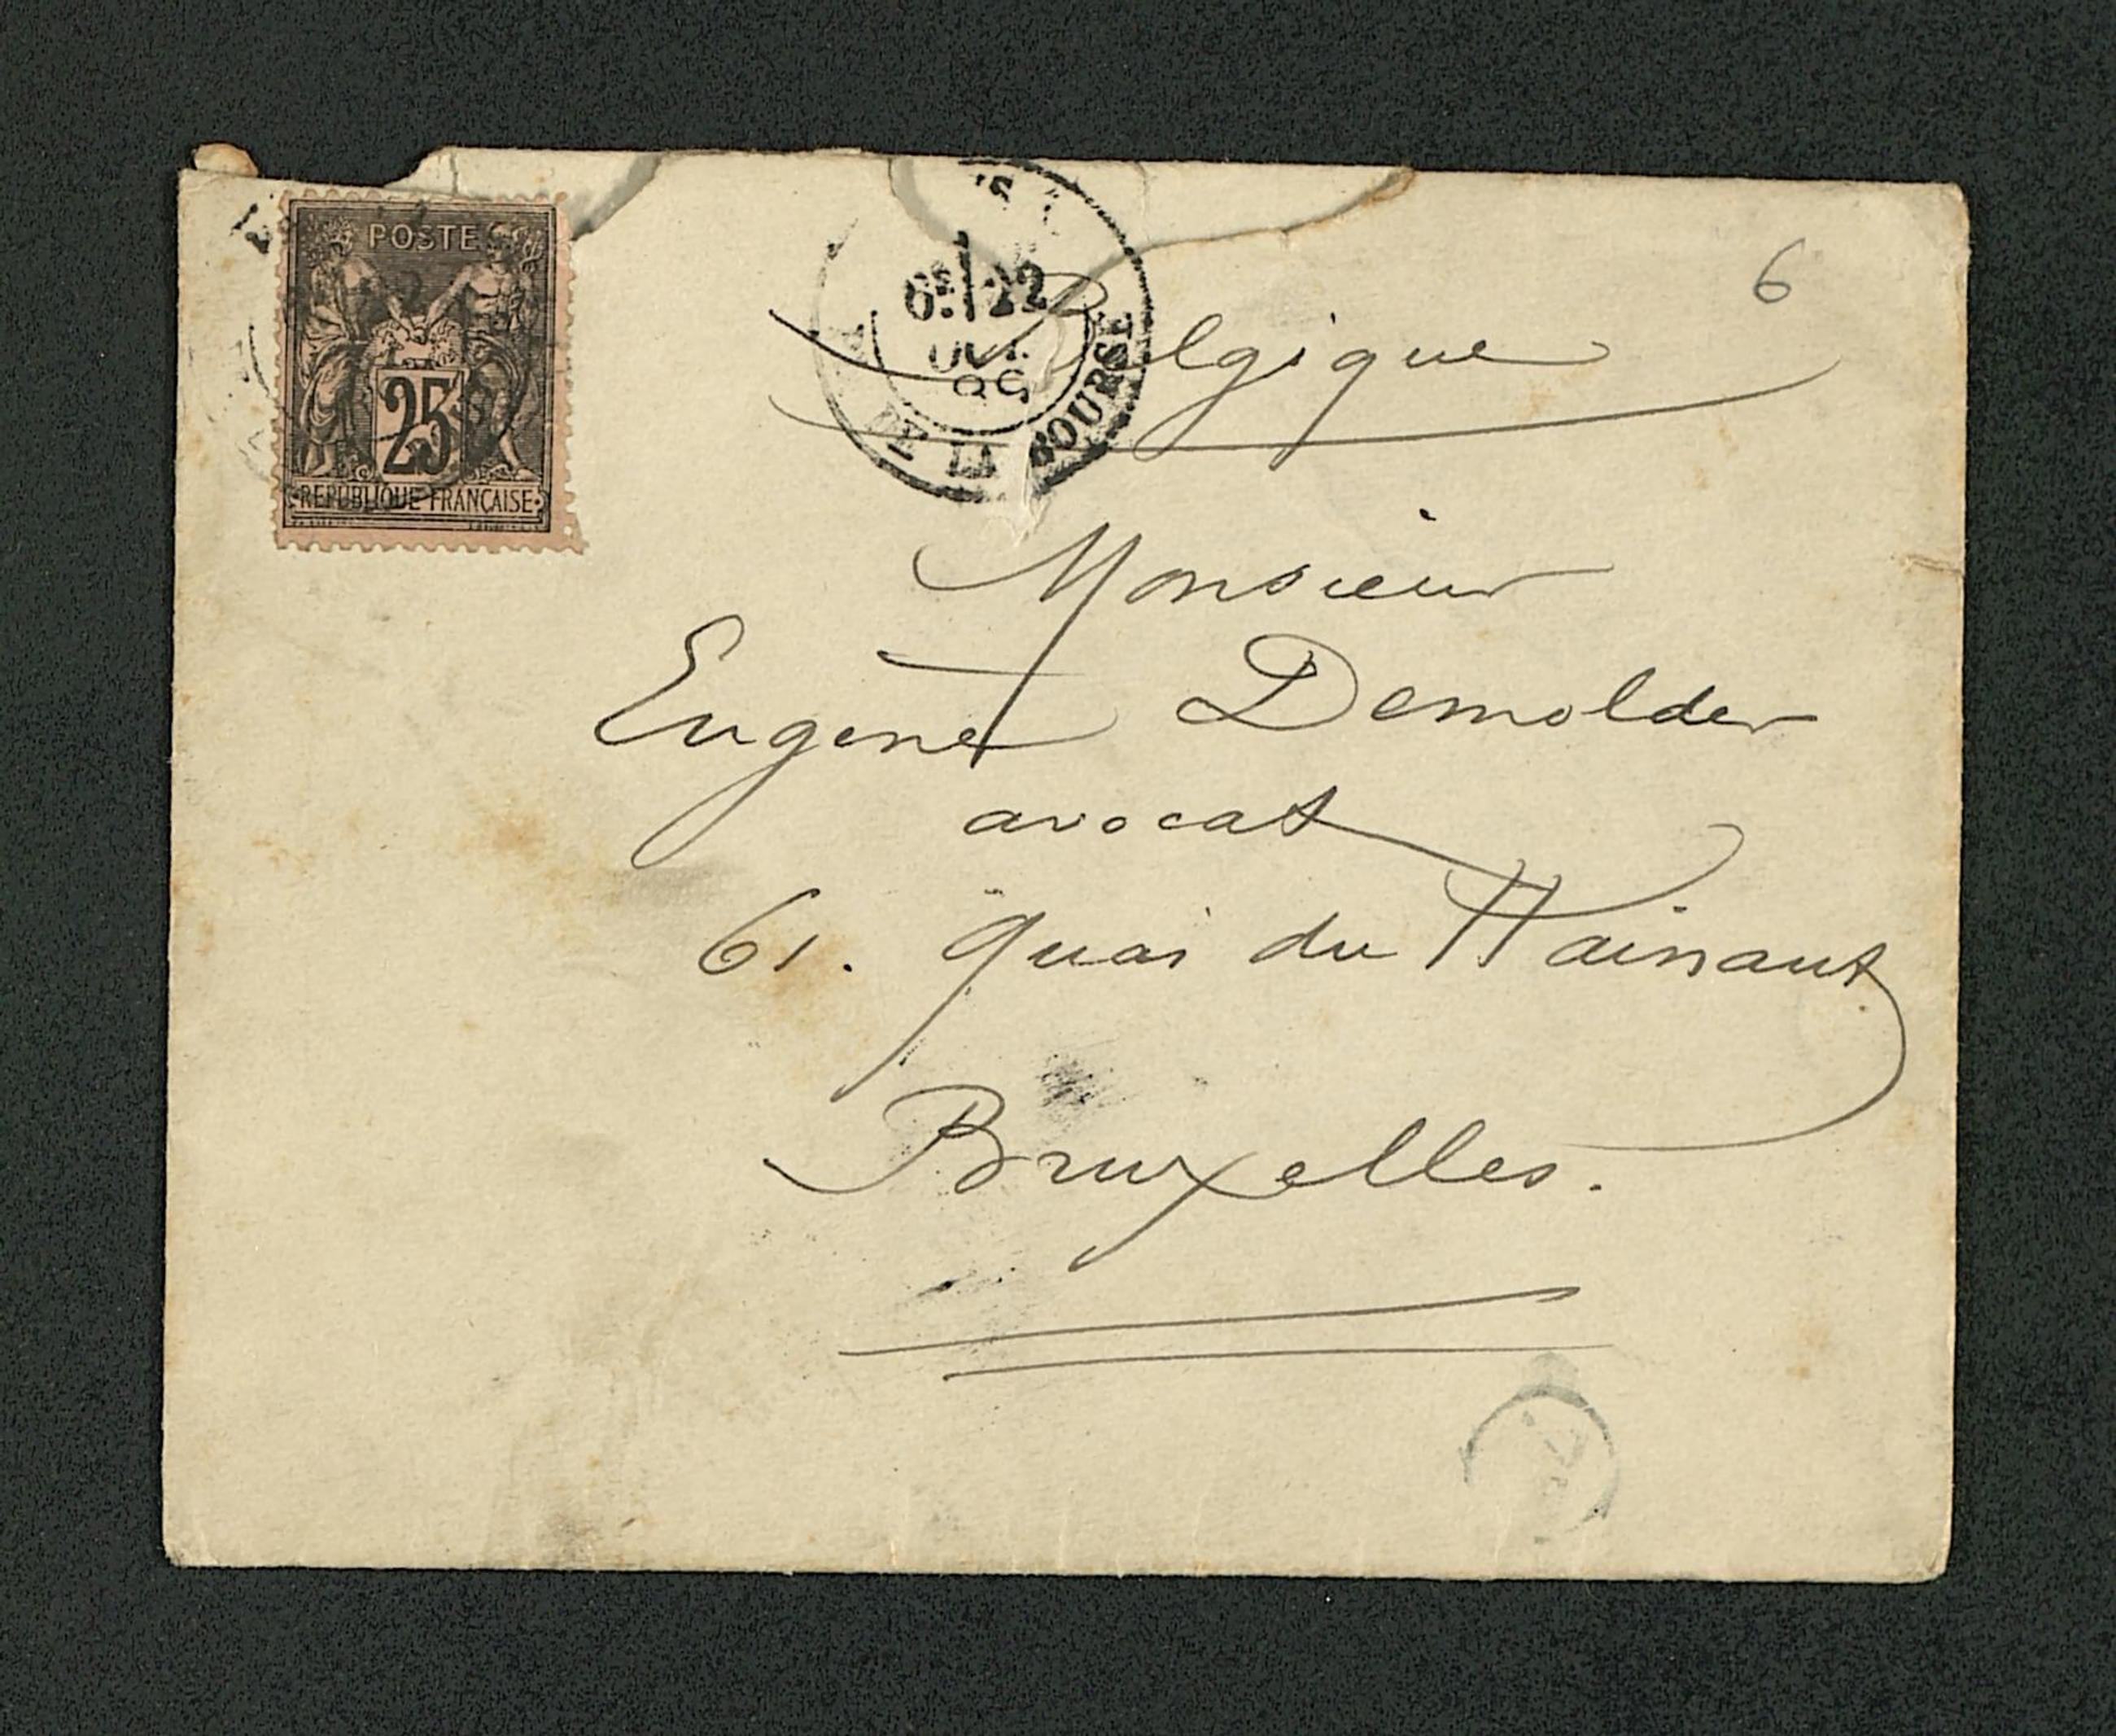 POSTE
25
REPUBLIQUE FRANÇAISE
6E 22
OCT.
DE LA BOURSE
6
Belgique
Monsieur
Eugène Demolder
avocat
61. quai du Hainaut
Bruxelles.